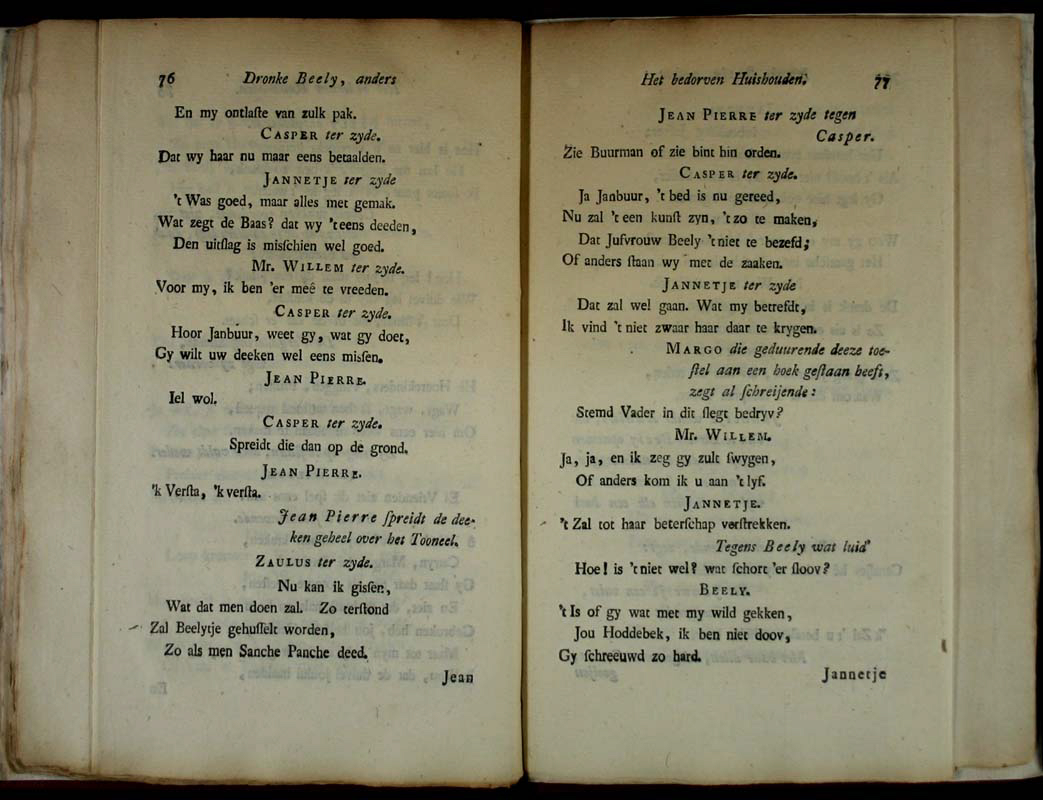 76 Dronke Beely, anders
En my ontlaſte van zulk pak.
CASPER ter zyde.
Dat wy haar nu maar eens betaalden.
JANNETJE ter zyde
't Was goed, maar alles met gemak.
Wat zegt de Baas? dat wy 't eens deeden,
Den uitſlag is misſchien wel goed.
Mr. WILLEM ter zyde.
Voor my, ik ben 'er meê te vreeden.
CASPER ter zyde.
Hoor Janbuur, weet gy, wat gy doet,
Gy wilt uw deeken wel eens misſen.
JEAN PIERRE.
Iel wol.
CASPER ter zyde.
Spreidt die dan op de grond.
JEAN PIERRE.
'k Verſta, 'k verſta.
Jean Pierre ſpreidt de dee-
ken geheel over het Tooneel.
ZAULUS ter zyde.
Nu kan ik gisſen,
Wat dat men doen zal. Zo terſtond
Zal Beelytje gehuſſelt worden,
Zo als men Sanche Panche deed.
Jean
Het bedorven Huishouden. 77
JEAN PIERRE ter zyde tegen
Casper.
Zie Buurman of zie bint hin orden.
CASPER ter zyde.
Ja Janbuur, 't bed is nu gereed,
Nu zal 't een kunſt zyn, 't zo te maken,
Dat Jufvrouw Beely 't niet te bezefd;
Of anders ſtaan wy met de zaaken.
JANNETJE ter zyde
Dat zal wel gaan. Wat my betrefdt,
Ik vind 't niet zwaar haar daar te krygen.
MARGO die geduurende deeze toe-
ſtel aan een hoek geſtaan heeft,
zegt al ſchreijende:
Stemd Vader in dit ſlegt bedryv?
Mr. WILLEM.
Ja, ja, en ik zeg gy zult ſwygen,
Of anders kom ik u aan 't lyf.
JANNETJE.
't Zal tot haar beterſchap verſtrekken.
Tegens Beely wat luid
Hoe! is 't niet wel? wat ſchort 'er ſloov?
BEELY.
't Is of gy wat met my wild gekken,
Jou Hoddebek, ik ben niet doov,
Gy ſchreeuwd zo hard.
Jannetje